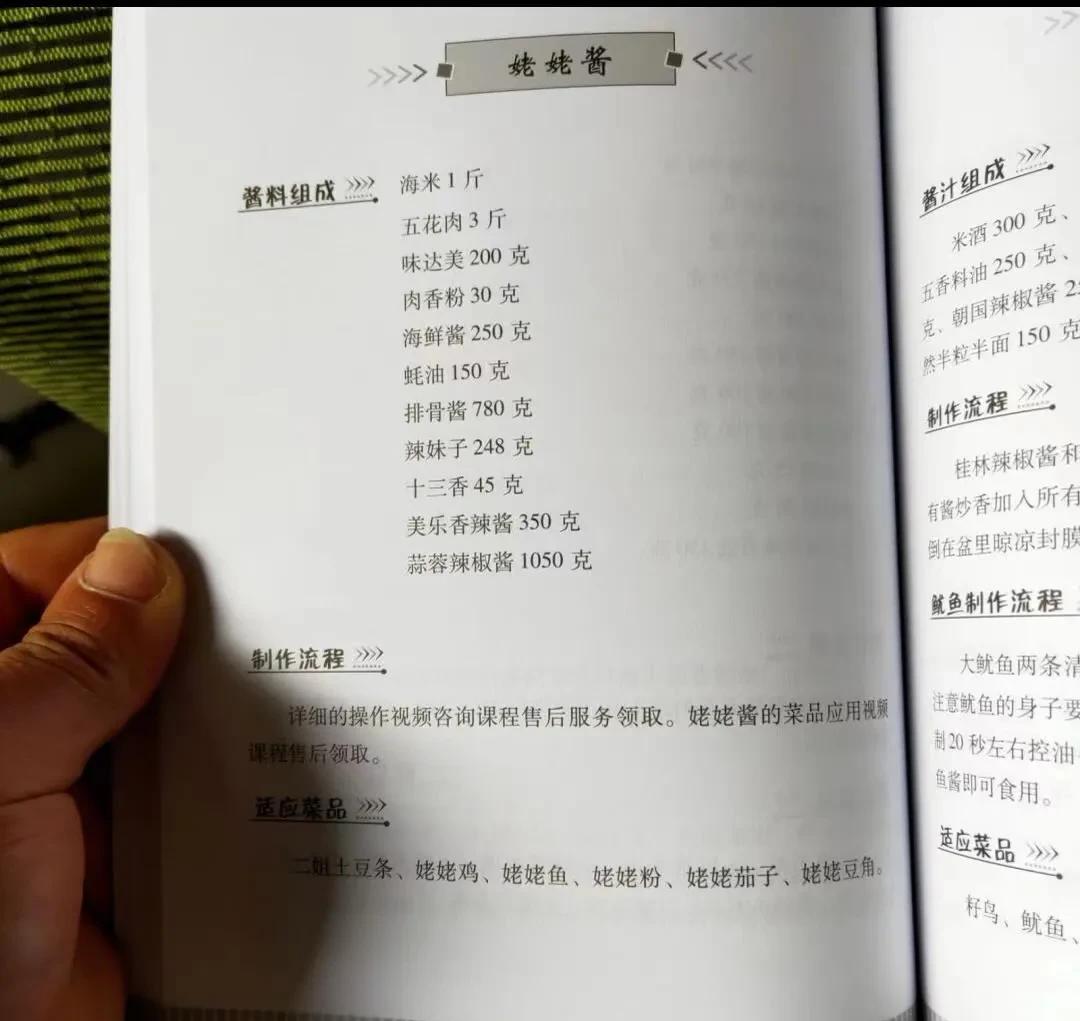 姥姥酱
酱料组成
海米 1 斤
五花肉 3 斤
味达美 200 克
肉香粉 30 克
海鲜酱 250 克
蚝油 150 克
排骨酱 780 克
辣妹子 248 克
十三香 45 克
美乐香辣酱 350 克
蒜蓉辣椒酱 1050 克
制作流程
详细的操作视频咨询课程售后服务领取。姥姥酱的菜品应用视频
课程售后领取。
适应菜品
二姐土豆条、姥姥鸡、姥姥鱼、姥姥粉、姥姥茄子、姥姥豆角。
酱汁组成
米酒 300 克、
五香料油 250 克、
克、朝国辣椒酱
然半粒半面 150 克
制作流程
桂林辣椒酱和
有酱炒香加入所有
倒在盆里晾凉封膜
鱿鱼制作流程
大鱿鱼两条清
注意鱿鱼的身子要
制 20 秒左右控油
鱼酱即可食用。
适应菜品
籽鸟、鱿鱼、